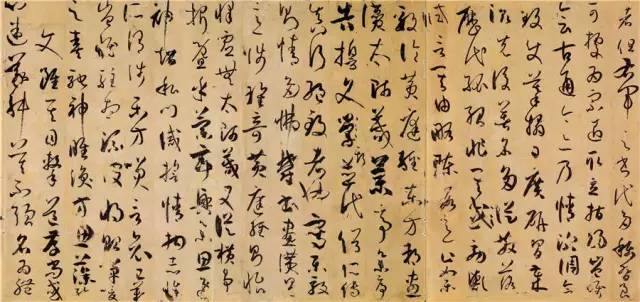 者但右軍之書代多稱習良
可據為宗匠取立指歸豈唯
會古通今亦乃情深調合
致使摹搨日廣研習歲
滋先後著名多從散落
歷代孤紹非其效歟
試言其由略陳數意止如樂
毅論黃庭經東方朔畫
讚太師箴蘭亭集序
告誓文斯並代俗所傳
真行絕致者也寫樂毅
則情多怫鬱書畫讚則
意涉瑰奇黃庭經則怡
懌虛無太師箴又縱橫爭
折暨乎蘭亭興集思逸
神超私門誡誓情拘志慘
所謂涉樂方笑言哀已歎
豈惟駐想流波將貽嘽喛
之奏馳神睢渙方思藻繪之
文雖其目擊道存尚或
心迷義舛莫不強名為體